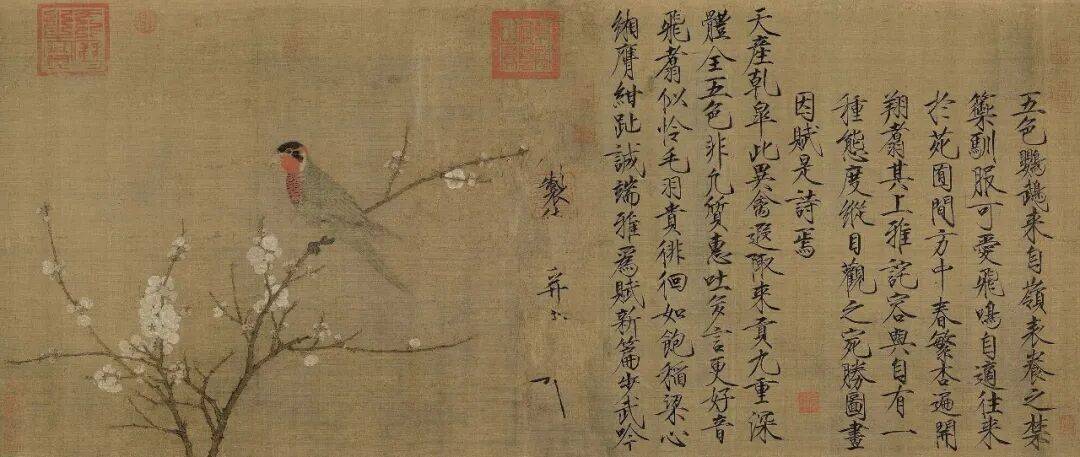 五色鸚鵡来自嶺表養之禁
籞馴服可愛飛鳴自適往来
於苑囿間方中春繁杏遍開
翔翥其上雅詫容與自有一
種態度縱目觀之宛勝圖畫
因賦是詩焉
天産乾皐此異禽遐陬来貢九重深
體全五色非凡質惠吐多言更好音
飛翥似憐毛羽貴徘徊如飽稲粱心
緗膺紺趾誠端雅為賦新篇步武吟